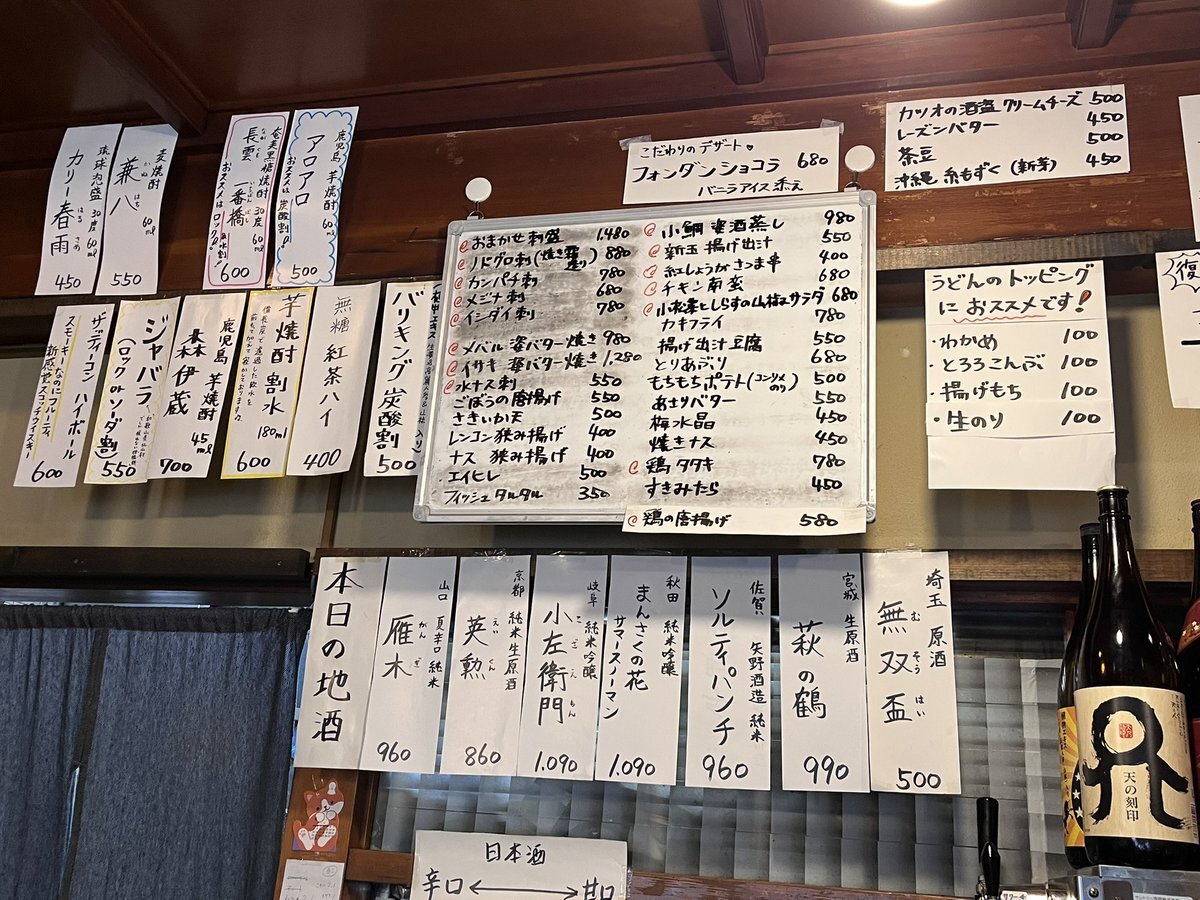 麦焼酎 60ml
兼八
かね
はち
550
琉球泡盛 30度 60ml
カリー春雨
はる
さめ
450
奄美黒糖焼酎 30度 60ml
長雲 一番橋
なが くも
いちばんばし
おススメはロック
600
鹿児島 芋焼酎 60ml
アロアロ
おススメは炭酸割
500
こだわりのデザート
フォンダンショコラ 680
バニラアイス添え
カツオの酒盗クリームチーズ 500
レーズンバター 450
茶豆 500
沖縄 糸もずく (新芽) 450
ザッティーコン ハイボール
スモーキーなのにフルーティ
新感覚スコッチウイスキー
600
ジャバラ
(ロック or ソーダ割)
550
鹿児島 芋焼酎 45ml
森伊蔵
700
芋焼酎割水
180ml
600
無糖 紅茶ハイ
400
バリキング炭酸割
500
おまかせ刺盛 1.480
ノドグロ刺(焼き霜造り) 880
カンパチ刺 780
メジナ刺 680
イシダイ刺 780
メバル姿バター焼き 980
イサキ 姿バター焼き 1.280
水ナス刺 550
ごぼうの唐揚げ 550
さきいか天 500
レンコン挟み揚げ 400
ナス 挟み揚げ 400
エイヒレ 500
フィッシュタルタル 350
小鯛 姿酒蒸し 980
新玉 揚げ出汁 550
紅しょうがさつま串 400
チキン南蛮 680
小松菜としらすの山桜みサラダ 680
カキフライ 780
揚げ出汁豆腐 550
とりあぶり 680
もちもちポテト(コンソメ のり) 500
あさりバター 550
梅水晶 450
焼きナス 450
鶏タタキ 780
すきみたら 450
鶏の唐揚げ 580
うどんのトッピング
におススメです!
・わかめ 100
・とろろこんぶ 100
・揚げもち 100
・生のり 100
復
本日の地酒
山口 夏辛口 純米
雁木
がん
ぎ
960
京都 純米生原酒
英勲
えい
くん
860
岐阜 純米吟醸
小左衛門
こ
ざ
え
もん
1.090
秋田 純米吟醸
まんさくの花
サマースノーマン
1.090
佐賀 矢野酒造 純米
ソルティパンチ
960
宮城 生原酒
萩の鶴
990
埼玉 原酒
無双盃
む
そう
はい
500
天の刻印
日本酒
辛口 ⟷ 甘口